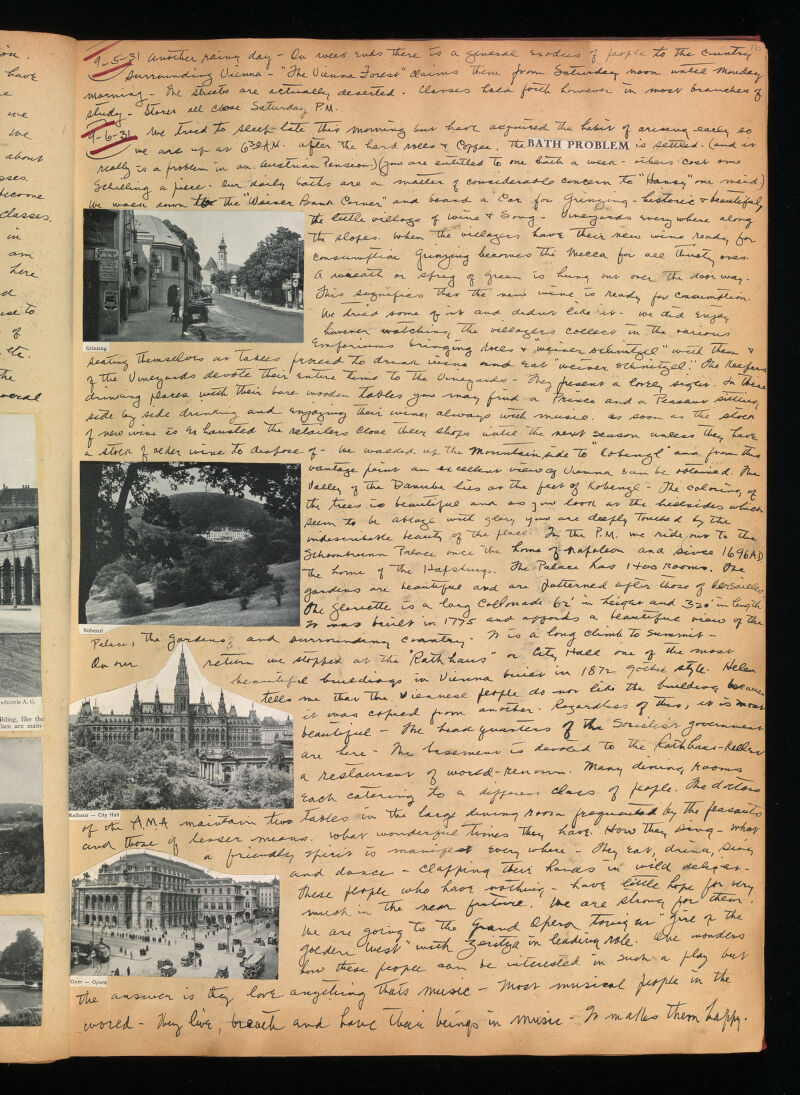 16
9-5-31 Another rainy day - On week ends there is a general exodus of people to the country
surrounding Vienna - "The Vienna Forest" claims them from Saturday noon until Monday
morning - The streets are actually deserted. Classes hold forth however in most branches of
study - Stores all close Saturday P.M.
9-6-31 We tried to sleep late this morning but have acquired the habit of arising early so
we are up at 6:30 A.M. after the hard rolls & Coffee, the BATH PROBLEM is settled. (and it
really is a problem in an Austrian Pension.) (you are entitled to one bath a week - others cost one
Schilling a piece - our daily baths are a matter of considerable concern to "Hansy" our maid)
We walk down to the "Wiener Bank Corner" and board a Car for Grinzing - historic & beautiful,
the little village of wine & Song - Vineyards everywhere along
the slopes. When the villagers have their new wine ready for
consumption Grinzing becomes the Mecca for all thirsty ones.
A wreath or sprig of Green is hung out over the door way.
This signifies that the new wine is ready for consumption.
We tried some of it and didn't like it - we did enjoy
however watching the villagers collect in the various
Emporiums bringing rolls & "weiner schnitzel" with them &
Grinzing
seating themselves at tables proceed to drink wine and eat "weiner schnitzel". The Keepers
of the Vineyards devote their entire time to the Vineyards - They present a lovely sight. In these
drinking places with their bare wooden tables you may find a Prince and a Peasant sitting
side by side drinking and enjoying their wine, always with music. as soon as the stock
of new wine is exhausted the retailers close their shops until the next season unless they have
a stock of older wine to dispose of - We walked up the Mountain side to "Cobenzl" and from this
vantage point an excellent view of Vienna can be obtained. The
Valley of the Danube lies at the feet of Kobenzl - The coloring of
the trees is beautiful and as you look at the hillsides which
seem to be ablaze with glory you are deeply touched by the
indescribable beauty of the place. In the P.M. we ride out to the
Schoenbrunn Palace once the home of Napoleon and since 1696 AD
the home of the Hapsburg. The Palace has 1400 rooms. The
gardens are beautiful and are patterned after those of Versailles.
The Gloriette is a long Collonade 62' in height and 320' in length
Kobenzl
It was built in 1775 and affords a beautiful view of the
Palace, the Gardens, and surrounding country. It is a long climb to summit -
On our return we stopped at the "Rathhaus" or City Hall one of the most
beautiful buildings in Vienna built in 1872 gothic style. Helen
tells me that the Viennese people do not like the building because
it was copied from another. Regardless of this, it is most
beautiful - The head quarters of the Socialist government
are here - The basement is devoted to the Rathhaus-Keller
a restaurant of world-renown. Many dining rooms
each catering to a different class of people. The doctors
Rathaus — City Hall
of the A.M.A maintain two tables in the large dining room frequented by the peasants
and those of lesser means. What wonderful times they have. How they sing - What
a friendly spirit is manifest every where - They eat, drink, sing
and dance - clapping their hands in wild delight -
These people who have nothing - have little hope for very
much in the near future. We are strong for them.
We are going to the Grand Opera tonight "Girl of the
Golden West" with Jeritza in leading role. One wonders
how these people can be interested in such a play but
Oper — Opera
the answer is they love anything thats music - Most musical people in the
world - They live, breath and have their beings in music - It makes them happy.